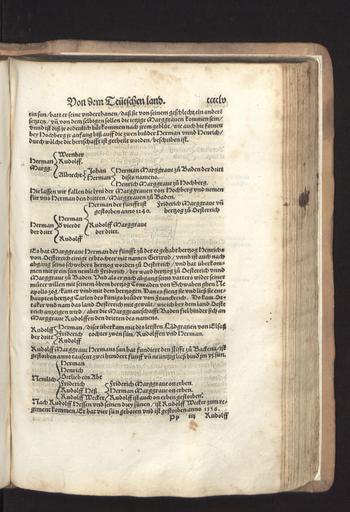 Von dem Teütschen land. ccclv
ein sun / hatt er seine underthanen / daß sie von seinem geschlecht ein andern
setzten / uñ von dem selbigen sollen die ietzige Marggraven kommen sein /
unnd ist diß ie ordenlich härkommen nach jrem geblüt / wie auch die fornen
bey Hochberg jr anfang biß auff die zwen brüder Herman unnd Henrich /
durch wölche die herrschafft ist getheilt worden / beschriben ist.
Wernher
Herman Rudolff.
Marggr. Johan Herman Marggrave zů Baden der dritt
Albrecht Herman diß namens.
Henrich Marggrave zů Hochberg.
Hie lassen wir fallen die lini der Marggraven von Hochberg und nemen
für uns Herman den dritten / Marggraven zů Baden.
Herman der fünfft ist Friderich Marggrave uñ
gestorben anno 1240. hertzog zů Oestereich
Herman Herman
der dritt der vierde Rudolff Marggrave
der dritt.
Rudolff
Es hat Marggrave Herman der fünfft zů der ee gehabt hertzog Henrichs
von Oestereich einige erbtochter mit namen Gertrud / unnd ist auch nach
abgang seins schwehers hertzog worden zů Oestereich / und hat überkom-
men mit jr ein sun nemlich Friderich / der ward hertzog zů Oestereich unnd
Marggrave zů Baden. Und als er nach abgang seins vatters wider seiner
můter willen mit seinem öhem hertzog Conraden von Schwaben ghen Ne
apolis zog / kam er umb mit dem hertzogen. Dañ es fieng sie und ließ sie ent-
haupten hertzog Carlen des künigs brůder von Franckreich. Do kam Ot-
takar und nam das land Oestereich mit gewalt / wie ich bey dem land Oeste
reich anzeigen wird / aber die Marggraveschafft Baden fiel hinder sich an
Marggrave Rudolffen den dritten des namens.
Herman / diser überkam mit des letsten Lãdgraven von Elsaß
Rudolff Friderich tochter zwen sün / Rudolffen und Herman.
der dritt Rudolff
Rudolff Marggrave Hermans sun hat fundiert den stifft zů Backena / ist
gestorben anno tausent zwei hundert fünff uñ neüntzig / ließ hind jm vj sün.
Herman
Henrich
Nemlich Gotlieb ein Abt
Friderich Friderich Marggrave on erben.
Rudolff Heß Herman Marggrave on erben.
Rudolff Wecker Rudolff ist auch on erben gestorben.
Nach Rudolff Hessen und seinen drey sünen / ist Rudolff Wecker zum re-
giment kommen / Er hat vier sün geboren und ist gestorben anno 1356.
Pp iiij Rudolff